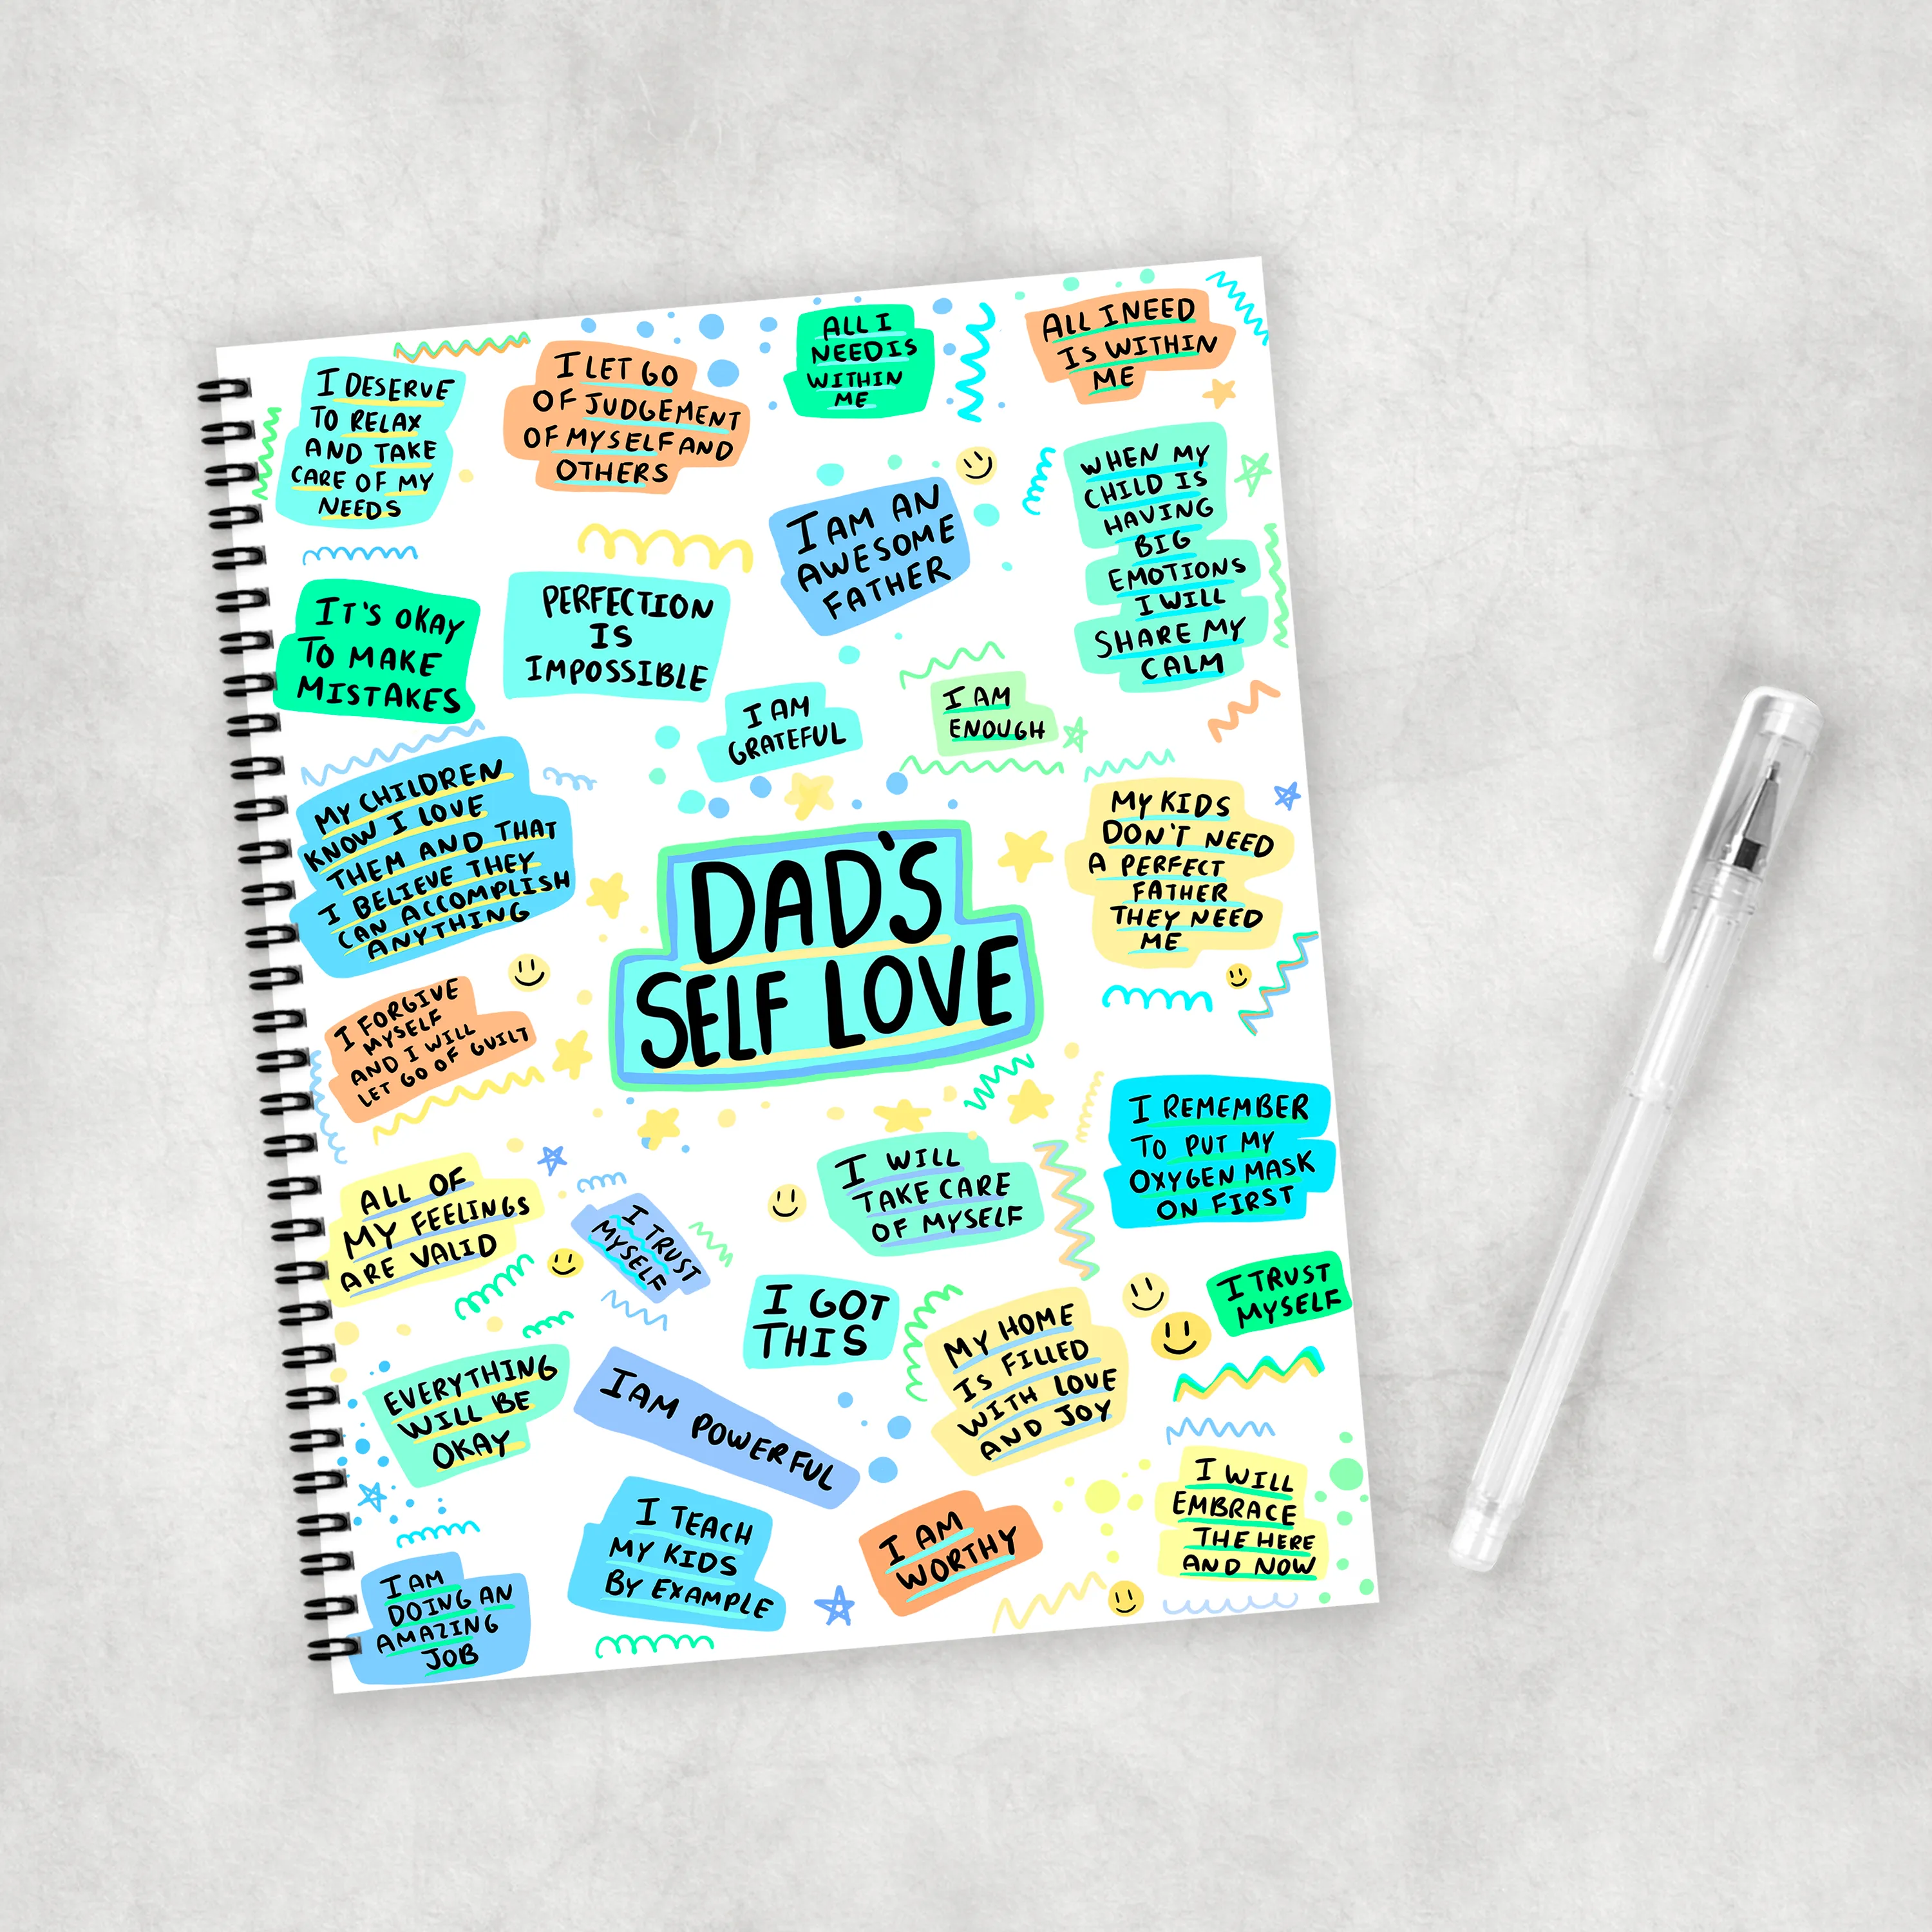 I DESERVE
TO RELAX
AND TAKE
CARE OF MY
NEEDS
I LET GO
OF JUDGEMENT
OF MYSELF AND
OTHERS
ALL I
NEED IS
WITHIN
ME
ALL I NEED
IS WITHIN
ME
I AM AN
AWESOME
FATHER
WHEN MY
CHILD IS
HAVING
BIG
EMOTIONS
I WILL
SHARE MY
CALM
IT'S OKAY
TO MAKE
MISTAKES
PERFECTION
IS
IMPOSSIBLE
I AM
GRATEFUL
I AM
ENOUGH
MY CHILDREN
KNOW I LOVE
THEM AND THAT
I BELIEVE THEY
CAN ACCOMPLISH
ANYTHING
DAD'S
SELF LOVE
MY KIDS
DON'T NEED
A PERFECT
FATHER
THEY NEED
ME
I FORGIVE
MYSELF
AND I WILL
LET GO OF GUILT
I REMEMBER
TO PUT MY
OXYGEN MASK
ON FIRST
ALL OF
MY FEELINGS
ARE VALID
I TRUST
MYSELF
I WILL
TAKE CARE
OF MYSELF
I GOT
THIS
MY HOME
IS FILLED
WITH LOVE
AND JOY
I TRUST
MYSELF
EVERYTHING
WILL BE
OKAY
I AM POWERFUL
I TEACH
MY KIDS
BY EXAMPLE
I AM
WORTHY
I WILL
EMBRACE
THE HERE
AND NOW
I AM
DOING AN
AMAZING
JOB